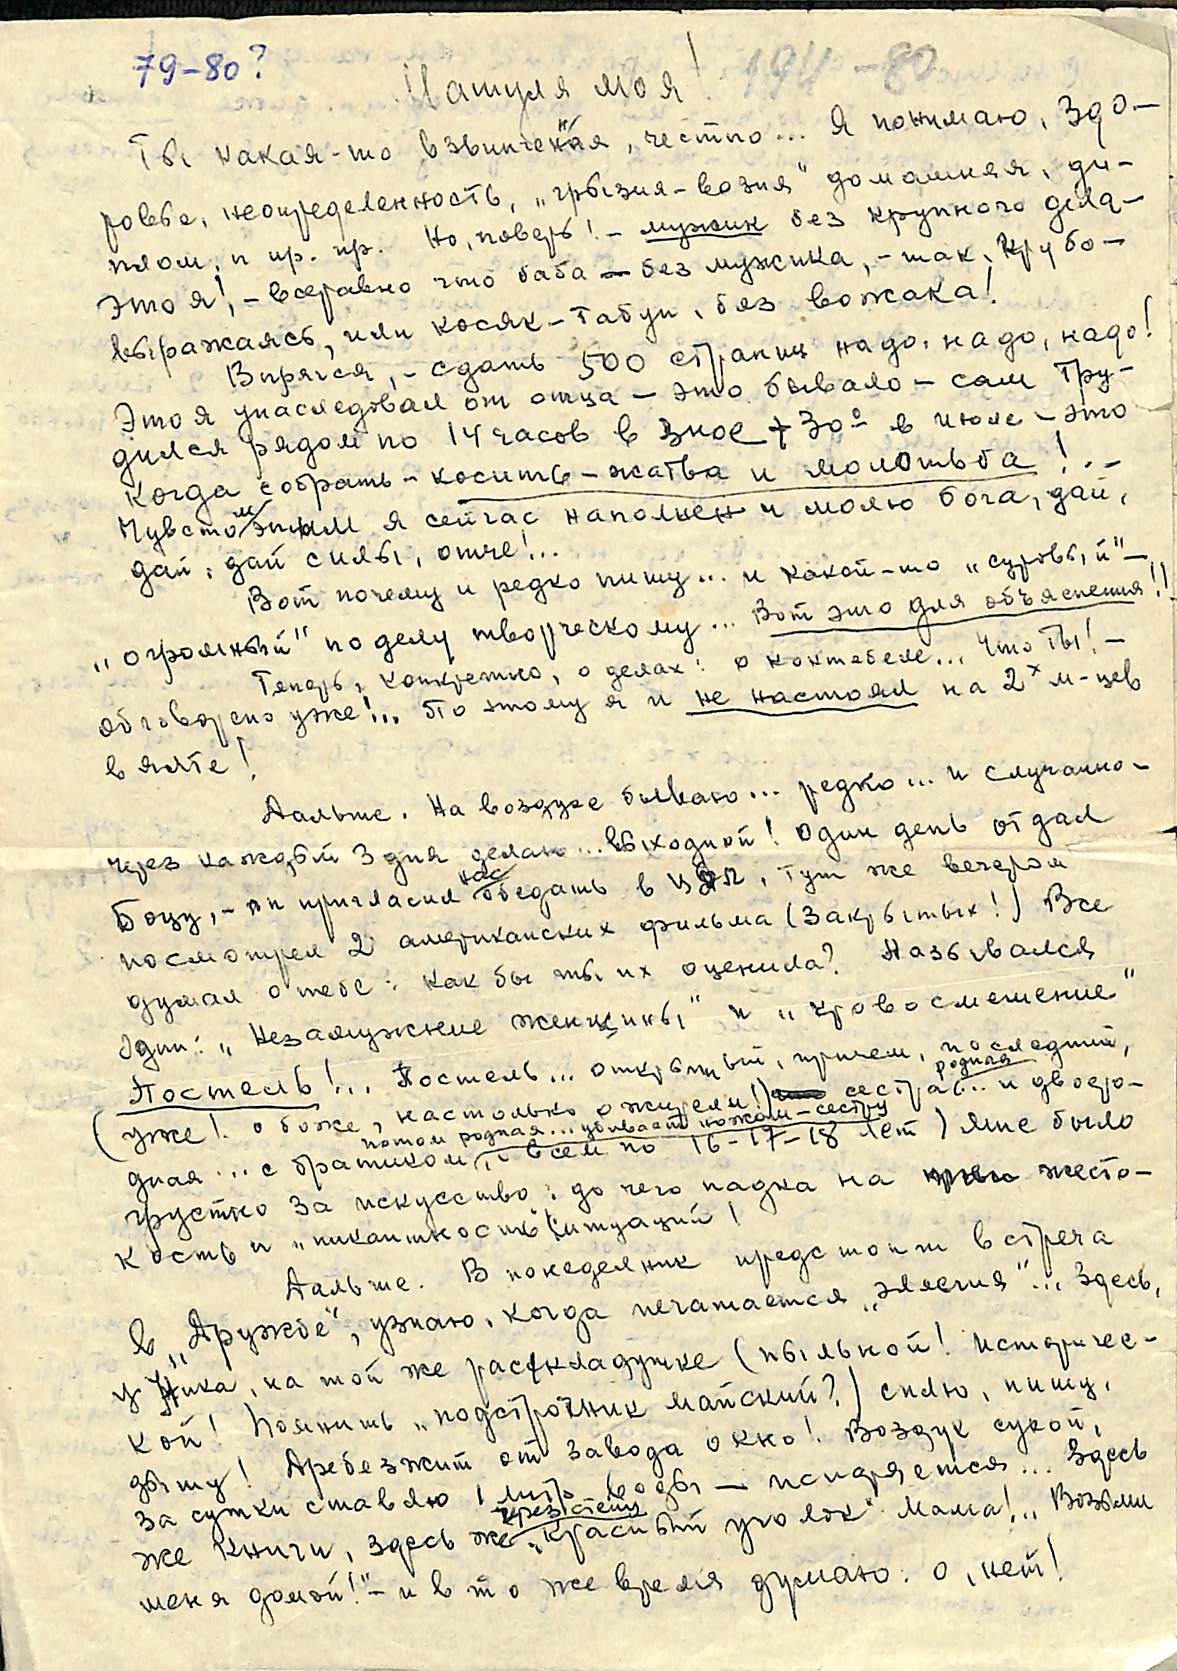 79-80?
194 -80
Натуля моя!
Ты какая-то взвинченная, честно... Я понимаю, здо-
ровье, неопределенность, „грызня-возня" домашняя, ди-
плом, и пр. пр. Но, поверь! - мужик без крупного дела-
это я!, - всеравно что баба - без мужика, - так, грубо-
выражаясь, или косяк-табун, без вожака!
Впрягся, - сдать 500 страниц надо, надо, надо!
Это я унаследовал от отца - это бывало - сам тру-
дился рядом по 14 часов в зное +30° в июле - это
когда собрать - косить - жатва и молотьба!..
Чувством этим я сейчас наполнен и молю бога, дай,
дай, дай силы, отче!...
Вот почему и редко пишу... и какой-то „суровый"-
„огромный" по делу творческому... Вот это для объяснения!!
Теперь, конкретно, о делах: о коктебеле... Что ты! -
обговорено уже!... По этому я и не настоял на 2х м-цев
в ялте!
Дальше. На воздухе бываю... редко... и случайно-
через каждый 3 дня делаю... выходной! Один день отдал
Боцу, - он пригласил нас обедать в ЦДЛ, тут же вечером
посмотрел 2 американских фильма (закрытых!) Все
думал о тебе: как бы ты их оценила? Назывался
один: „Незамужние женщины" и „кровосмешение"
Постель!... Постель... открытый, причем, последний,
(уже! о боже, настолько ожирели!) сестра... родная и двоюро-
дная... с братиком, потом родная... убивает ножом-сестру и всем по 16-17-18 лет) Мне было
грустно за искусство: до чего падка на жесто-
кость и „пикантность" ситуаций!
Дальше. В понеделник предстоит встреча
в „Дружбе", узнаю, когда печатается „элегия"... Здесь,
у Ника, на той же раскладушке (пыльной! историчес-
кой! Помнишь „подстрочник майский?) сплю, пишу,
дышу! Дребезжит от завода окно! Воздух сухой,
за сутки ставлю 1 литр воды - испаряется... Здесь
же книги, здесь же через стену „красный уголок" Мама!.. Возьми
меня домой!" - и в то же время думаю: о, нет!